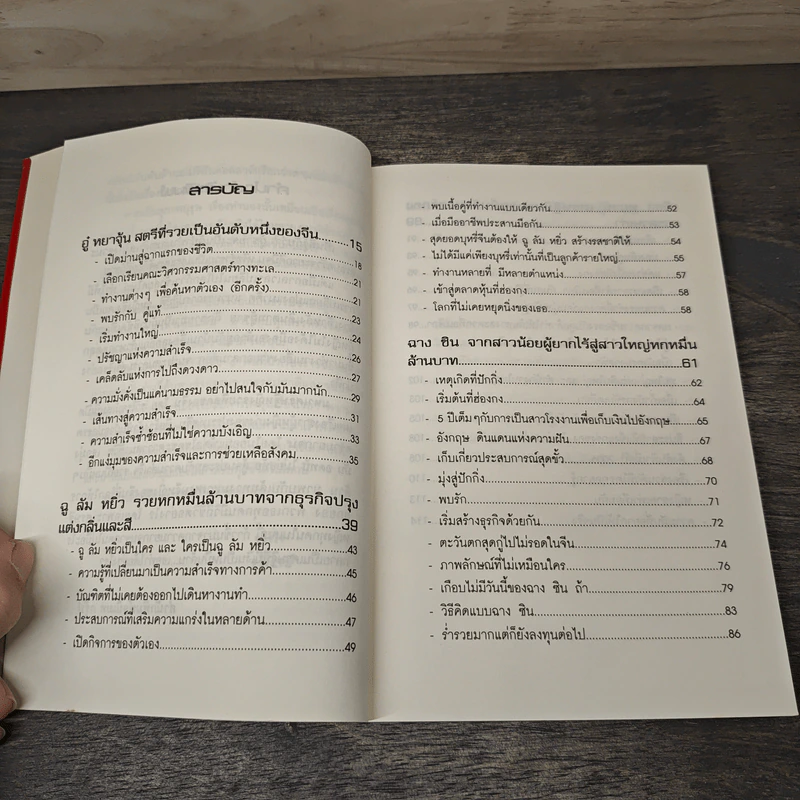 สารบัญ
อู๋ หยาจุ้น สตรีที่รวยเป็นอันดับหนึ่งของจีน.........15
- เปิดม่านสู่ฉากแรกของชีวิต.........18
- เลือกเรียนคณะวิศวกรรมศาสตร์ทางทะเล.........21
- ทำงานต่างๆ เพื่อค้นหาตัวเอง (อีกครั้ง).........21
- พบรักกับ คู่แท้.........23
- เริ่มทำงานใหญ่.........24
- ปรัชญาแห่งความสำเร็จ.........26
- เคล็ดลับแห่งการไปถึงดวงดาว.........27
- ความมั่งคั่งเป็นแค่นามธรรม อย่าไปสนใจกับมันมากนัก.........29
- เส้นทางสู่ความสำเร็จ.........31
- ความสำเร็จซ้ำซ้อนที่ไม่ใช่ความบังเอิญ.........33
- อีกแง่มุมของความสำเร็จและการช่วยเหลือสังคม.........35
ฉู ลัม หยิ่ว รวยหกหมื่นล้านบาทจากธุรกิจปรุง
แต่งกลิ่นและสี.........39
- ฉู ลัม หยิ่วเป็นใคร และ ใครเป็นฉู ลัม หยิ่ว.........43
- ความรู้ที่เปลี่ยนมาเป็นความสำเร็จทางการค้า.........45
- บัณฑิตที่ไม่เคยต้องออกไปเดินหางานทำ.........46
- ประสบการณ์ที่เสริมความแกร่งในหลายด้าน.........47
- เปิดกิจการของตัวเอง.........49
- พบเนื้อคู่ที่ทำงานแบบเดียวกัน.........52
- เมื่อมืออาชีพประสานมือกัน.........53
- สุดยอดบุหรี่จีนต้องให้ ฉู ลัม หยิ่ว สร้างรสชาติให้.........54
- ไม่ได้มีแค่เพียงบุหรี่เท่านั้นที่เป็นลูกค้ารายใหญ่.........55
- ทำงานหลายที่ มีหลายตำแหน่ง.........57
- เข้าสู่ตลาดหุ้นที่ฮ่องกง.........58
- โลกที่ไม่เคยหยุดนิ่งของเธอ.........58
ฉาง ซิน จากสาวน้อยผู้ยากไร้สู่สาวใหญ่หกหมื่น
ล้านบาท.........61
- เหตุเกิดที่ปักกิ่ง.........62
- เริ่มต้นที่ฮ่องกง.........64
- 5 ปีเต็มๆกับการเป็นสาวโรงงานเพื่อเก็บเงินไปอังกฤษ.........65
- อังกฤษ ดินแดนแห่งความฝัน.........67
- เก็บเกี่ยวประสบการณ์สุดขั้ว.........68
- มุ่งสู่ปักกิ่ง.........70
- พบรัก.........71
- เริ่มสร้างธุรกิจด้วยกัน.........72
- ตะวันตกสุดกู่ไปไม่รอดในจีน.........74
- ภาพลักษณ์ที่ไม่เหมือนใคร.........76
- เกือบไม่มีวันนี้ของฉาง ซิน ถ้า.........79
- วิธีคิดแบบฉาง ซิน.........83
- ร่ำรวยมากแต่ก็ยังลงทุนต่อไป.........86